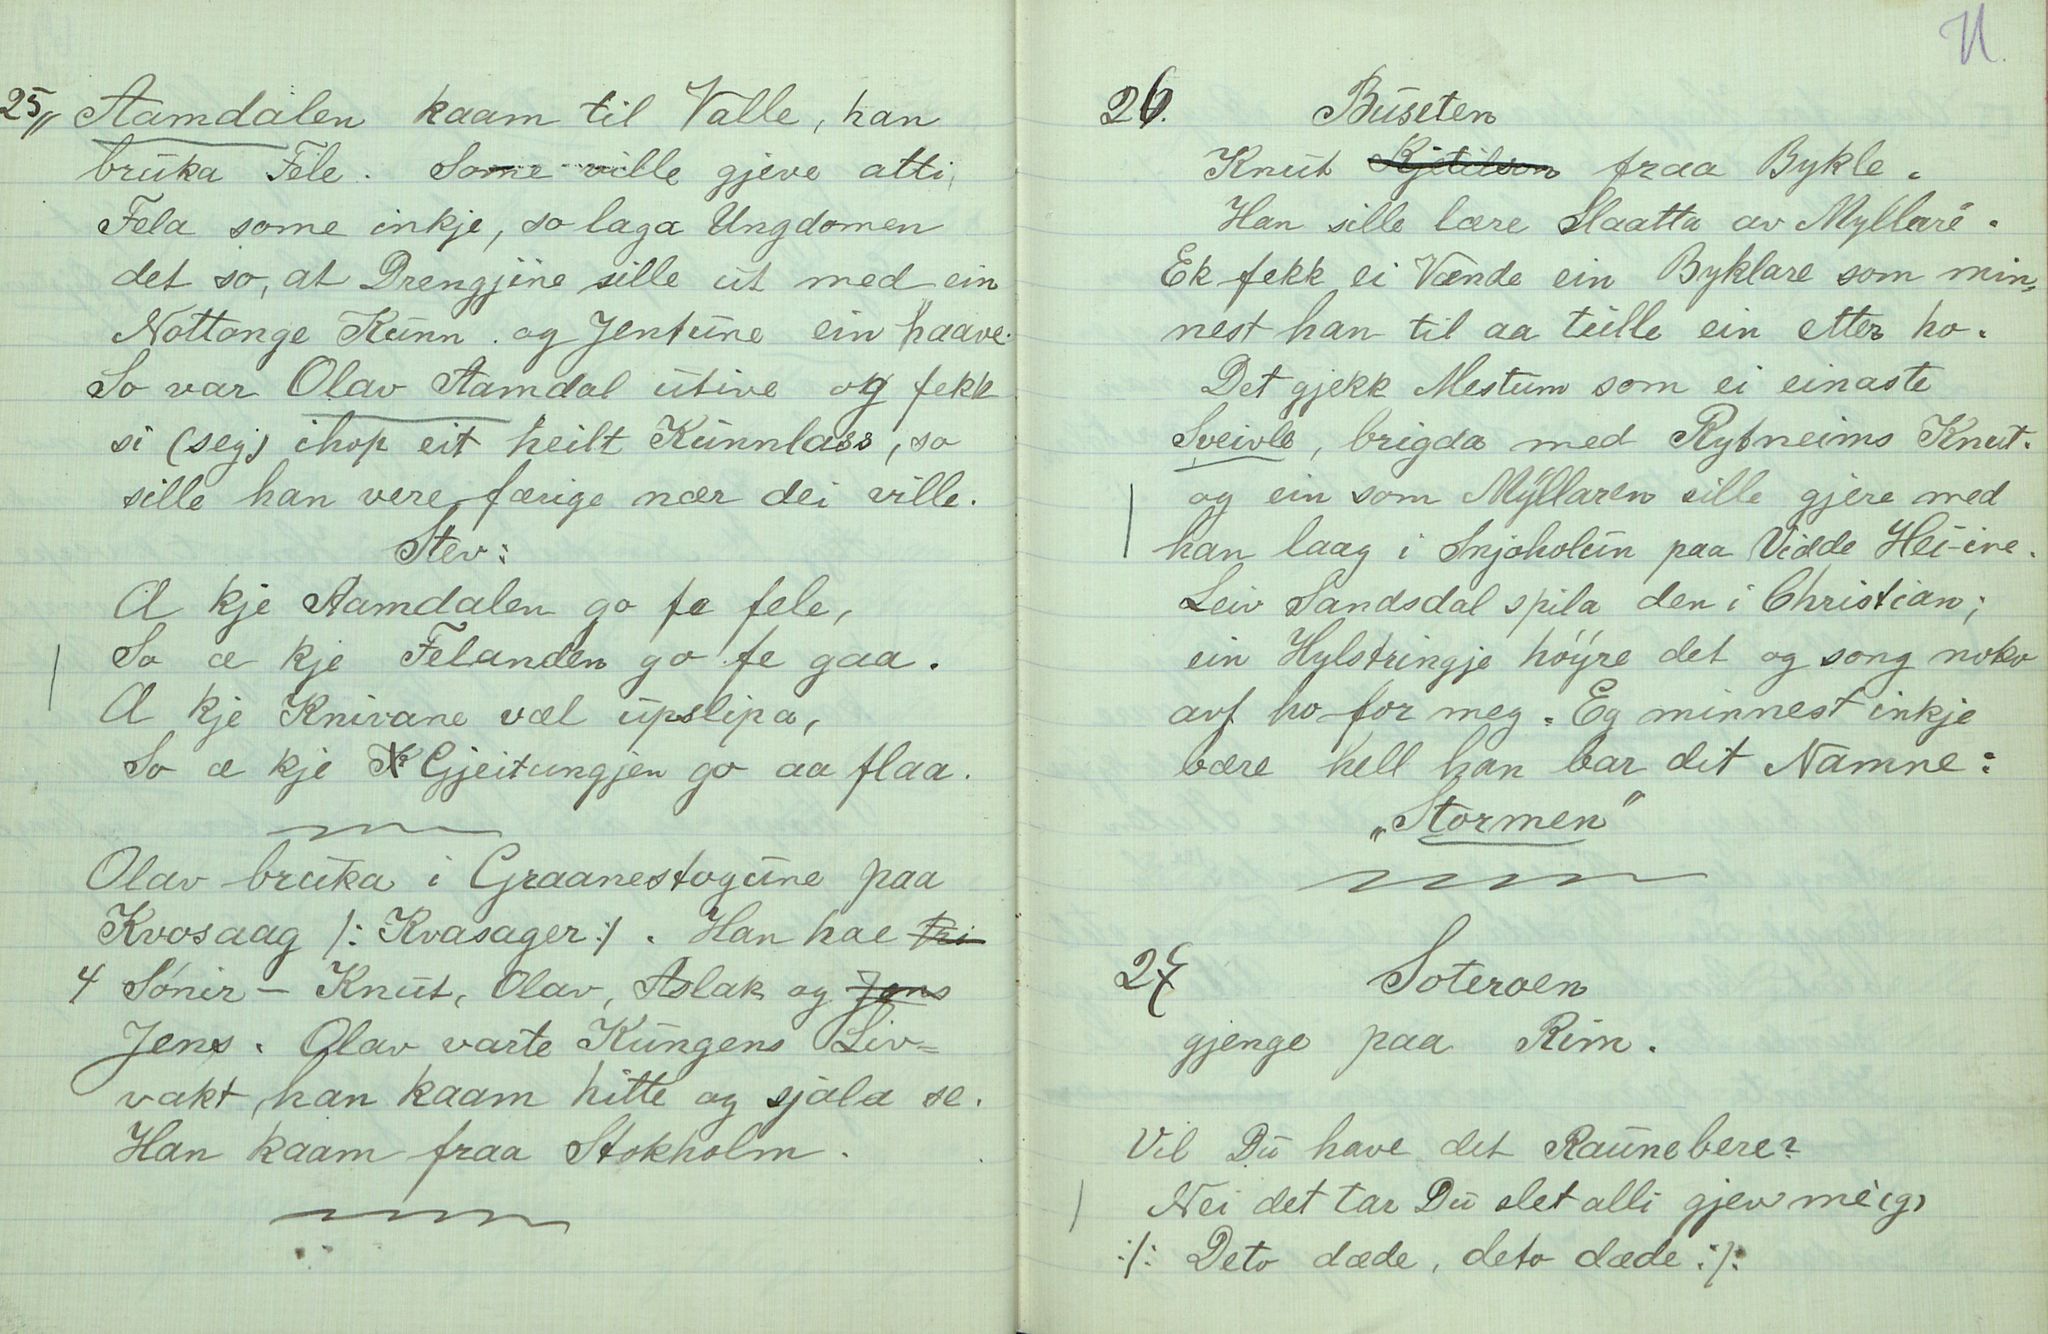 25 Aamdalen kaam til Valle, han
bruka Fele. Some ville gjeve atti
Fela some inkje, so laga Ungdomen
det so, at Drengjine sille ut med ein
Nottange Kunn og Jentune ein haave.
So var Olav Aamdal utive og fekk
si (seg) ihop eit heilt Kunnlass, so
sille han vere færige nær dei ville.
Stev:
Æ kje Aamdalen go fe fele,
So æ kje Felanden go fe gaa.
Æ kje Knivane væl upslipa,
So æ kje Gjeitungjen go aa flaa.
Olav bruka i Graanestogune paa
Kvosaag /: Kvasager :/. Han hae tri
4 Sónir – Knut, Olav, Aslak og Jons
Jens. Olav varte Kungens Liv=
vakt, han kaam hitte og sjåla se.
Han kaam fraa Stokholm.
11.
26. Buseten
Knut Kjetilson fraa Bykle.
Han sille lære Slaatta av Myllaré.
Ek fekk ei Vænde ein Byklare som min=
nest han til aa tulle ein etter ho.
Det gjekk Mestum som ei einaste
Sveivle, brigda med Rysneims Knut.
og ein som Myllaren sille gjere med
han laag i Snjoholun paa Vidde Hei-ine.
Leiv Sandsdal spila den i Christian;
ein Hylstringje høyre det og song noko
avf ho for meg. Eg minnest inkje
bære hell han bar dit Namne:
„Stormen"
27 Soteroen
gjenge paa Rim.
Vil Du have det Raunebere?
Nei det tar Du slet alli gjev mei(g)
:/: Deto dæde, deto dæde :/: